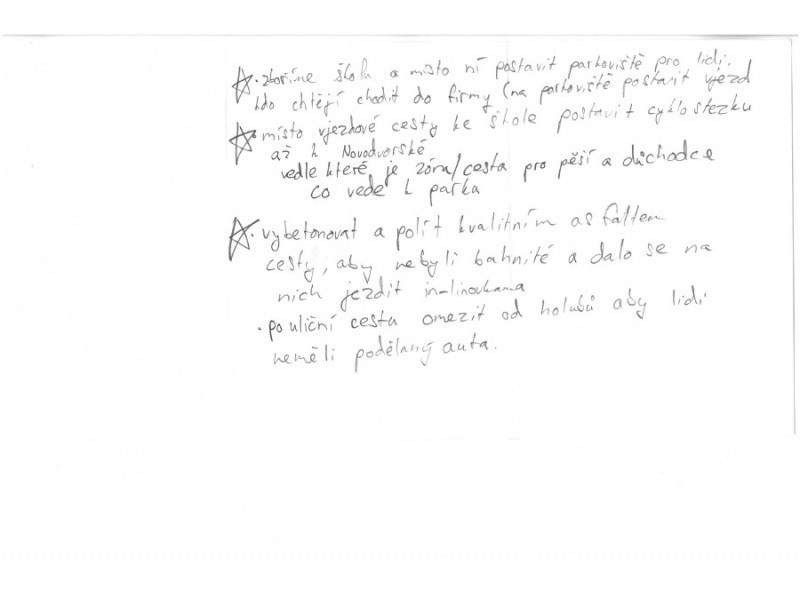 • zboříme školu a místo ní postavit parkoviště pro lidi.
kdo chtějí chodit do firmy (na parkoviště postavit vjezd
• místo vjezdové cesty ke škole postavit cyklostezku
až k Novodvorské
vedle které je zóna/cesta pro pěší a důchodce
co vede k parku
• vybetonovat a polít kvalitním asfaltem
cesty, aby nebyli bahnité a dalo se na
nich jezdit in-linovkama
• pouliční cesta omezit od holubů aby lidi
neměli podělaný auta.